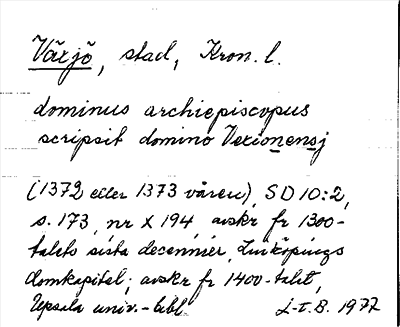 Växjö, stad, Kron. l.
dominus archiepiscopus
scripsit domino Vexionensj
(1372 eller 1373 våren), SD 10:2,
s. 173, nr X 194, avskr fr 1300-
talets sista decennier, Linköpings
domkapitel; avskr fr 1400-talet,
Upsala univ.-bibl. L-E.B. 1977